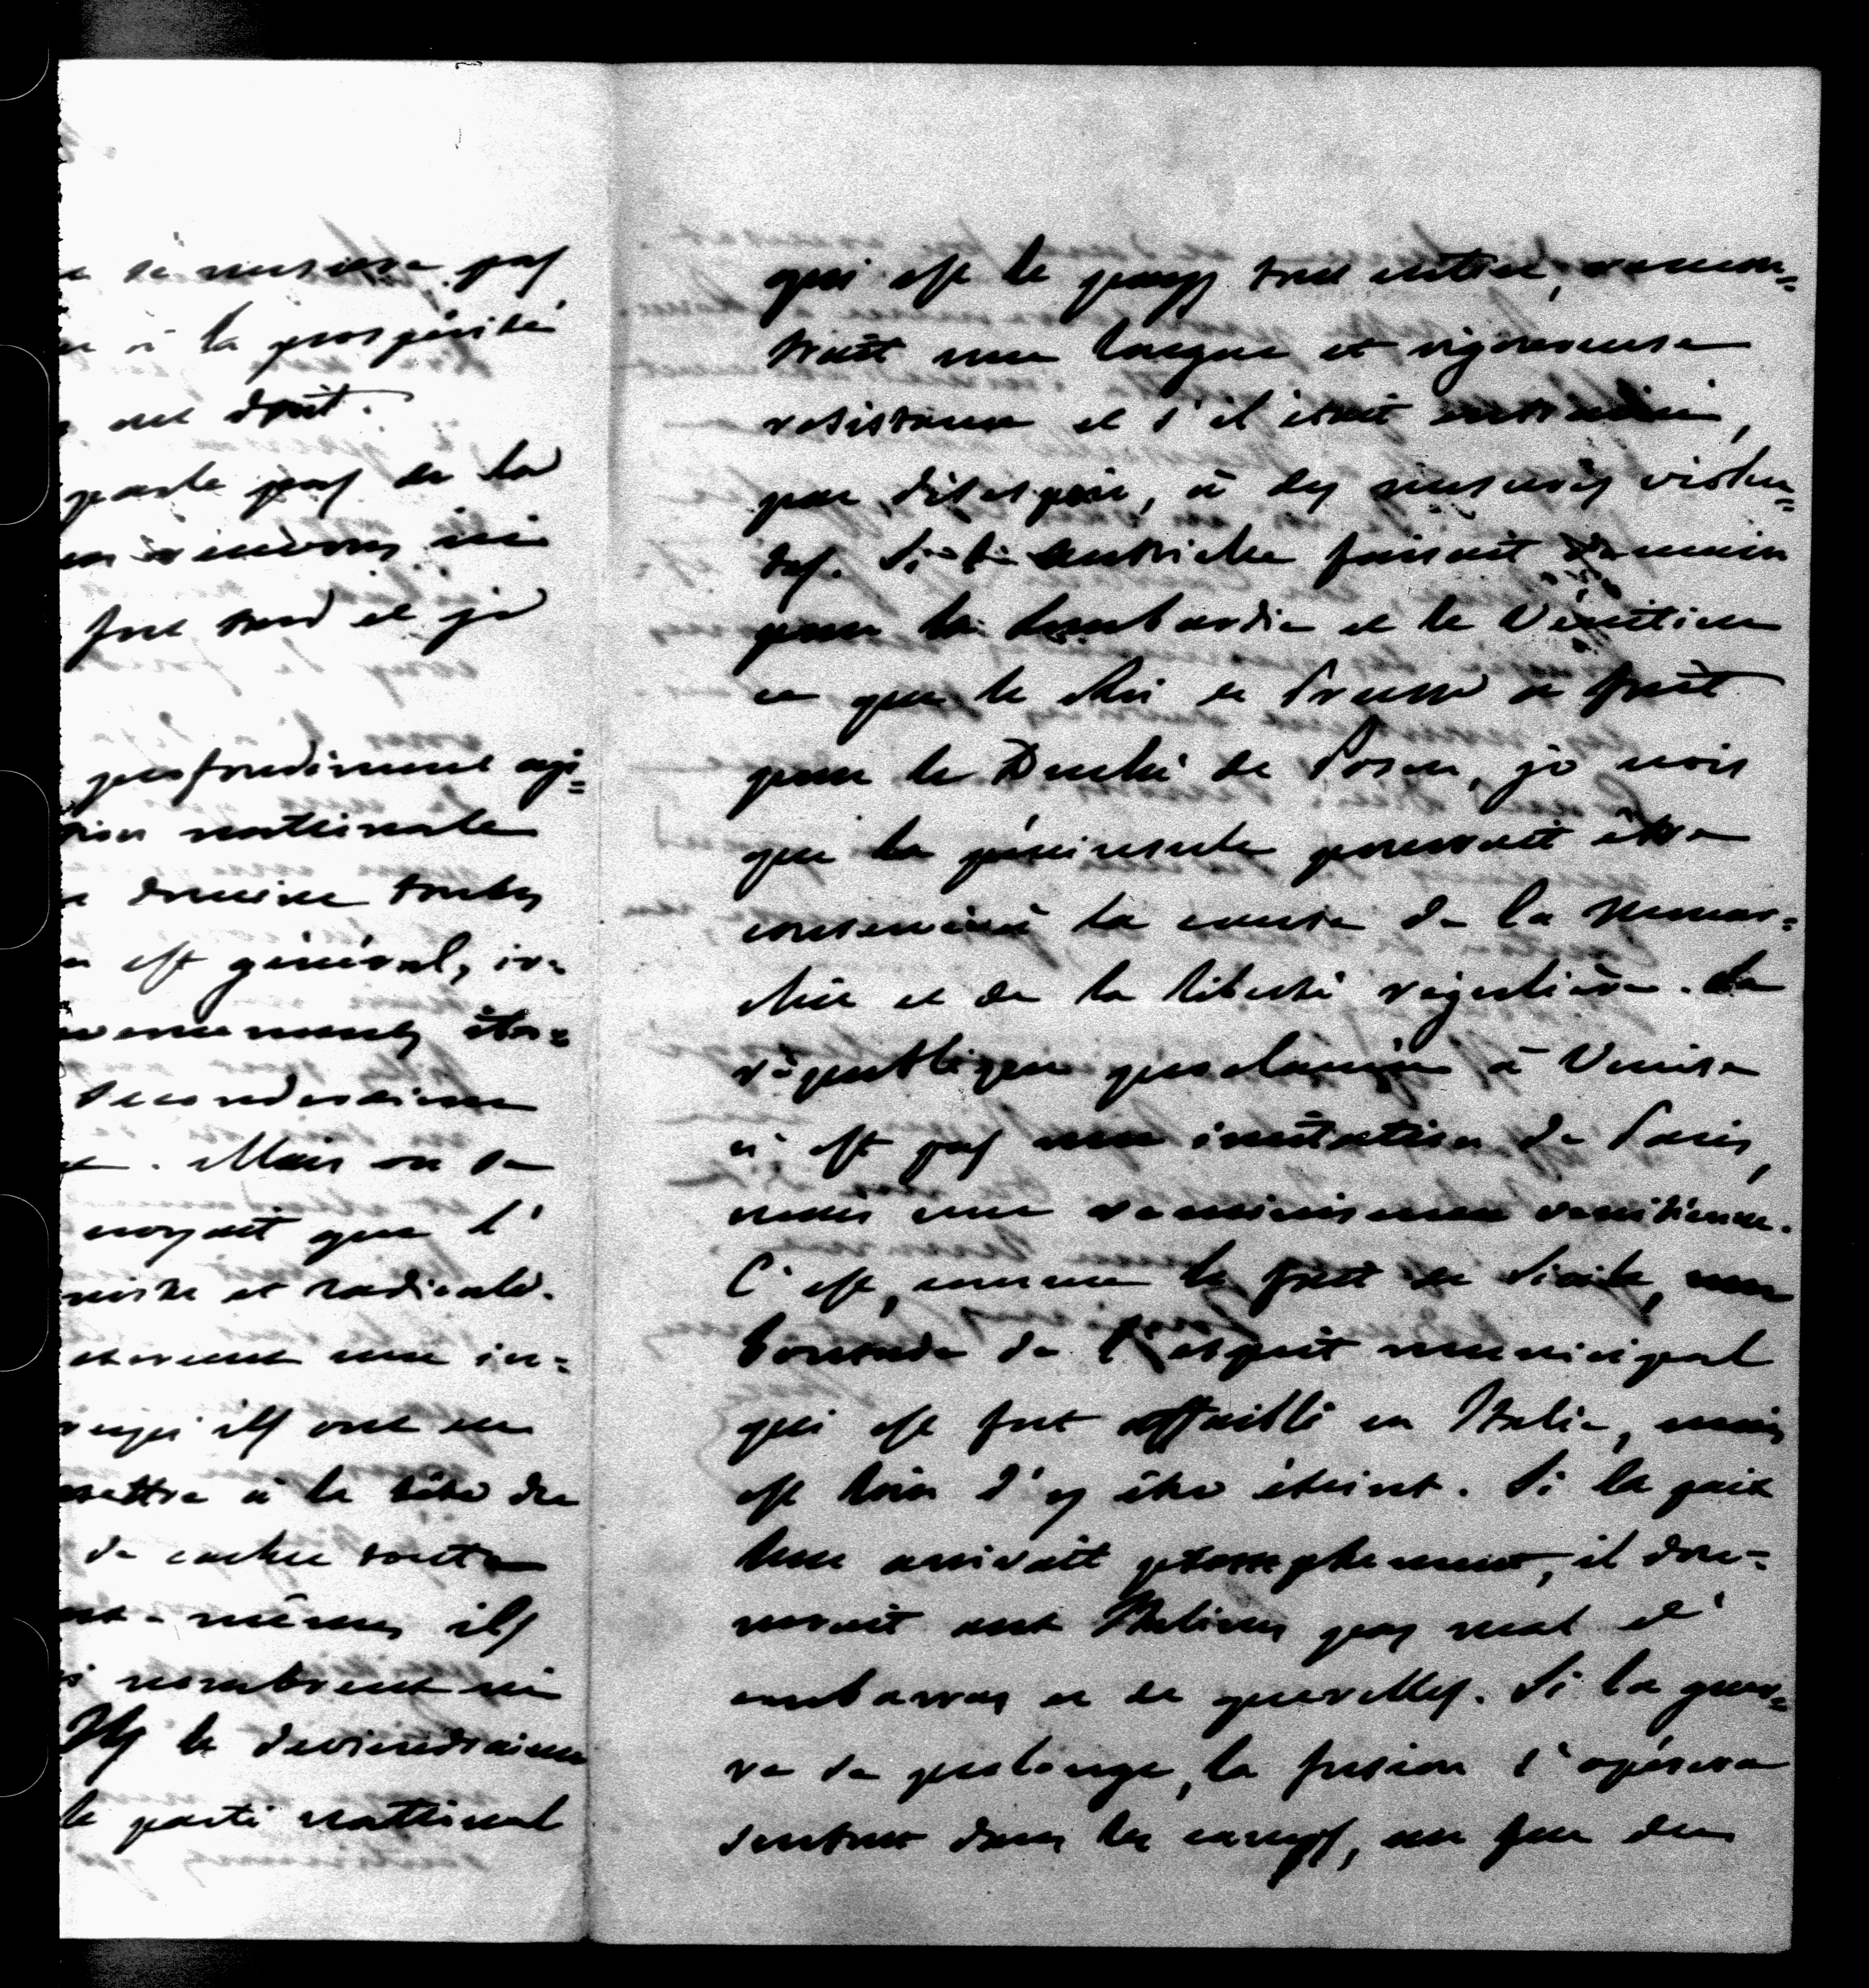 se mesure pas
à la prospérité
ont droit.
parle pas de la
ici
fort tard et je
profondément agi=
nationale
domine toutes
est général, ir=
Secondraient
. Mais on se
croyait que l'
et radicale.
une in=
ils ont su
mettre à la tête du
de cacher toute
mêmes ils
nombreux ni
Ils le deviendraient
le parti national
qui est le pays tout entier, rencon=
trait une longue et vigoureuse
résistance et s'il était entraîné,
par désespoir, à des mesures violen=
tes. Si l'Autriche faisait demain
pour la Lombardie et le Vénitien
ce que le Roi de Prusse a fait
pour le Duché de Posen, je crois
que la péninsule pourrait être
conservée à la cause de la Monar=
chie et de la liberté régulière. La
république proclamée à Venise
n'est pas une imitation de Paris,
mais une réminiscence vénitienne.
C'est, comme le fait de Sicile, une
boutade de l'esprit municipal
qui est fort affaibli en Italie, mais
est loin d'y être éteint. Si la paix
leur arrivait promptement, il don=
nerait aux Italiens pas mal d'
embarras et de querelles. Si la guer=
re se prolonge, la fusion s'opérera
surtout dans les camps, au feu des